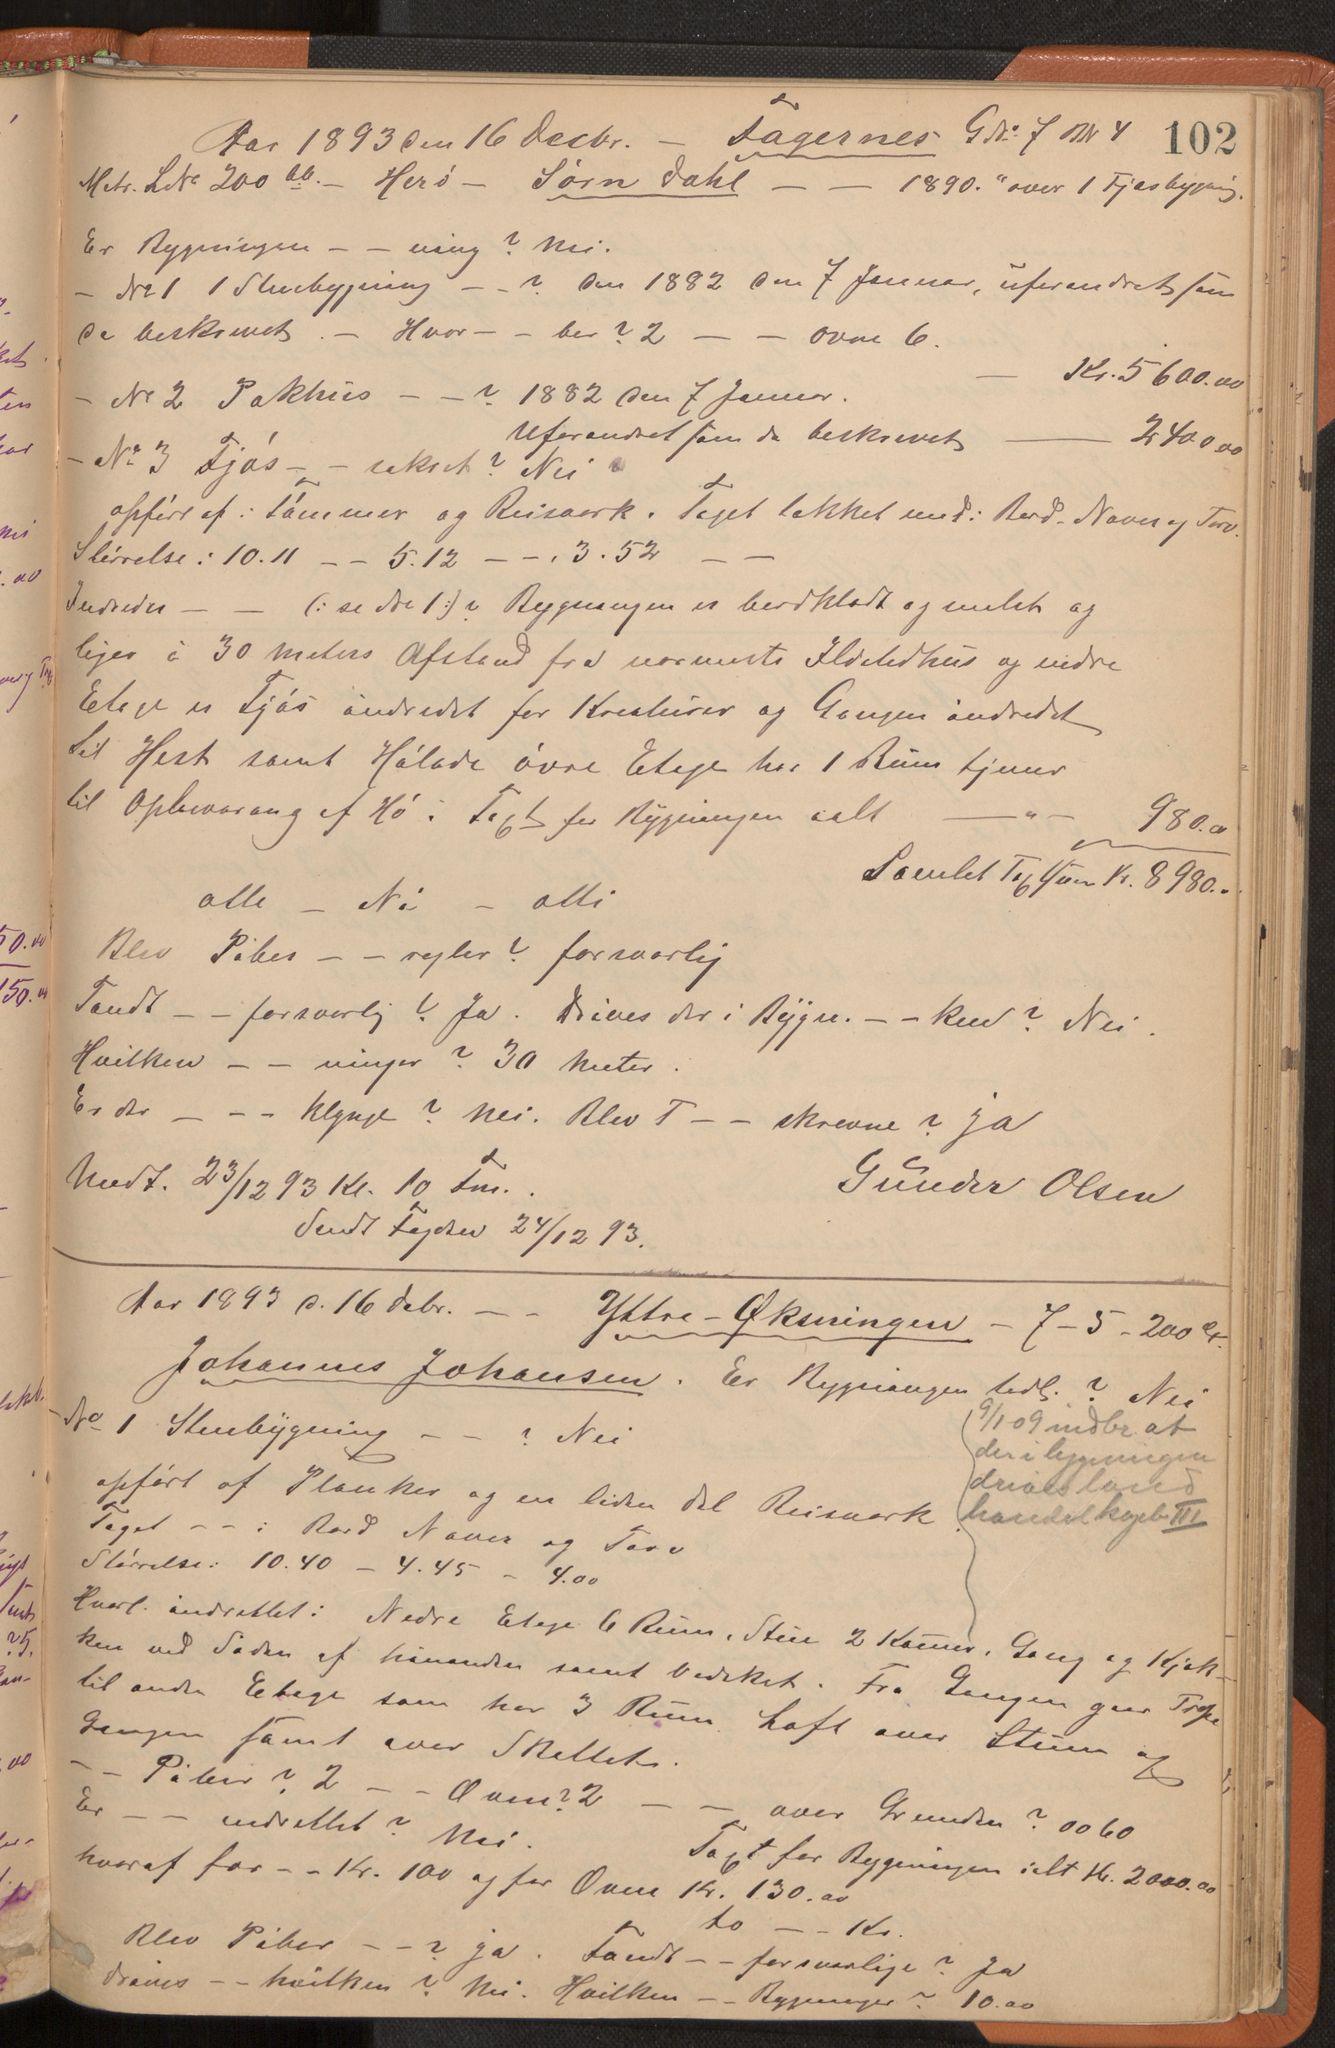 102
Aar 1893 den 16 Decbr. — Fagernes G.No. 7 BN 4
Matr. LNo 200 bb. — Herö — Sörn Dahl — — 1890. " over 1 Fjøsbygning.
Er Bygningen — — ning? Nei.
— No 1 1 Stuebygning — — ? den 1882 den 7 Januar, uforandret som
da beskrevet. — Hvor — — ber? 2 — — ovne 6.
— Kr. 5600.00
— No 2 Pakhus — — ? 1882 den 7 Januar.
Uforandret som da beskrevet — 2400.00
— No 3 Fjós — — sikret? Nei
opfört af: Tömmer og Reisverk. Taget tækket med: Bord. Never og Torv.
Störrelse: 10.11 — — 5.12 — — . 3.52 — —
Indredes — — (: se No 1 :)? Bygningen er bordklædt og malet og
ligger i 30 Meters Afstand fra nærmeste Ildstedhus og nedre
Etage er Fjós indredet for Kreaturer og Gangen indredet
til Hest samt Hólade óvre Etage har 1 Rum tjener
til Opbevaring af Hó. Taxt for Bygningen ialt — " — 980.00
Samlet Taxtsum Kr. 8980..
alle — Nei — alti
Blev Piber — — regler? forsvarlig
Fandt — — forsvarlig? Ja. Drives der i Bygn. — — ken? Nei.
Hvilken — — ninger? 30 Meter.
Er der — — — klynge? Nei. Blev T — — skrevne? ja
Modt. 23/12 93 Kl. 10 Fm. Gunder Olsen
Sendt Fogden 24/12 93.
Aar 1893 d. 16 Debr. — — Yttre-Øksningen — 7 — 5 — 200
Johannes Johansen. Er Bygningen tidl.? Nei
— No 1 Stuebygning — — ? Nei
9/1 09 indber at
der i bygningen
drives land
handel
III
opfört af Planker og en liden del Reisverk.
Taget — — : Bord Never og Torv
Störrelse: 10.40 — 4.45 — 4.00
Hvorl. indrettet: Nedre Etage 6 Rum, Stue 2 Kamer, Gang og Kjök-
ken ved Siden af hinanden samt Vedsket. Fra Gangen gaar Trape
til anden Etage som har 3 Rum Loft over Stuen og
Gangen samt over Skellet.
— — Piber? 2 — — Ovne? 2 — — over Grunden? 0060
Er — — indrettet? Nei. Taxt for Bygningen ialt Kr. 2000.00
hvoraf for — — Kr. 100 og for Ovne Kr. 130.00
to — — Kr.
Blev Piber — — ? ja. Fandt — — forsvarlige? Ja
Drives — — hvilken? Nei. Hvilken — — Bygninger? 10.00